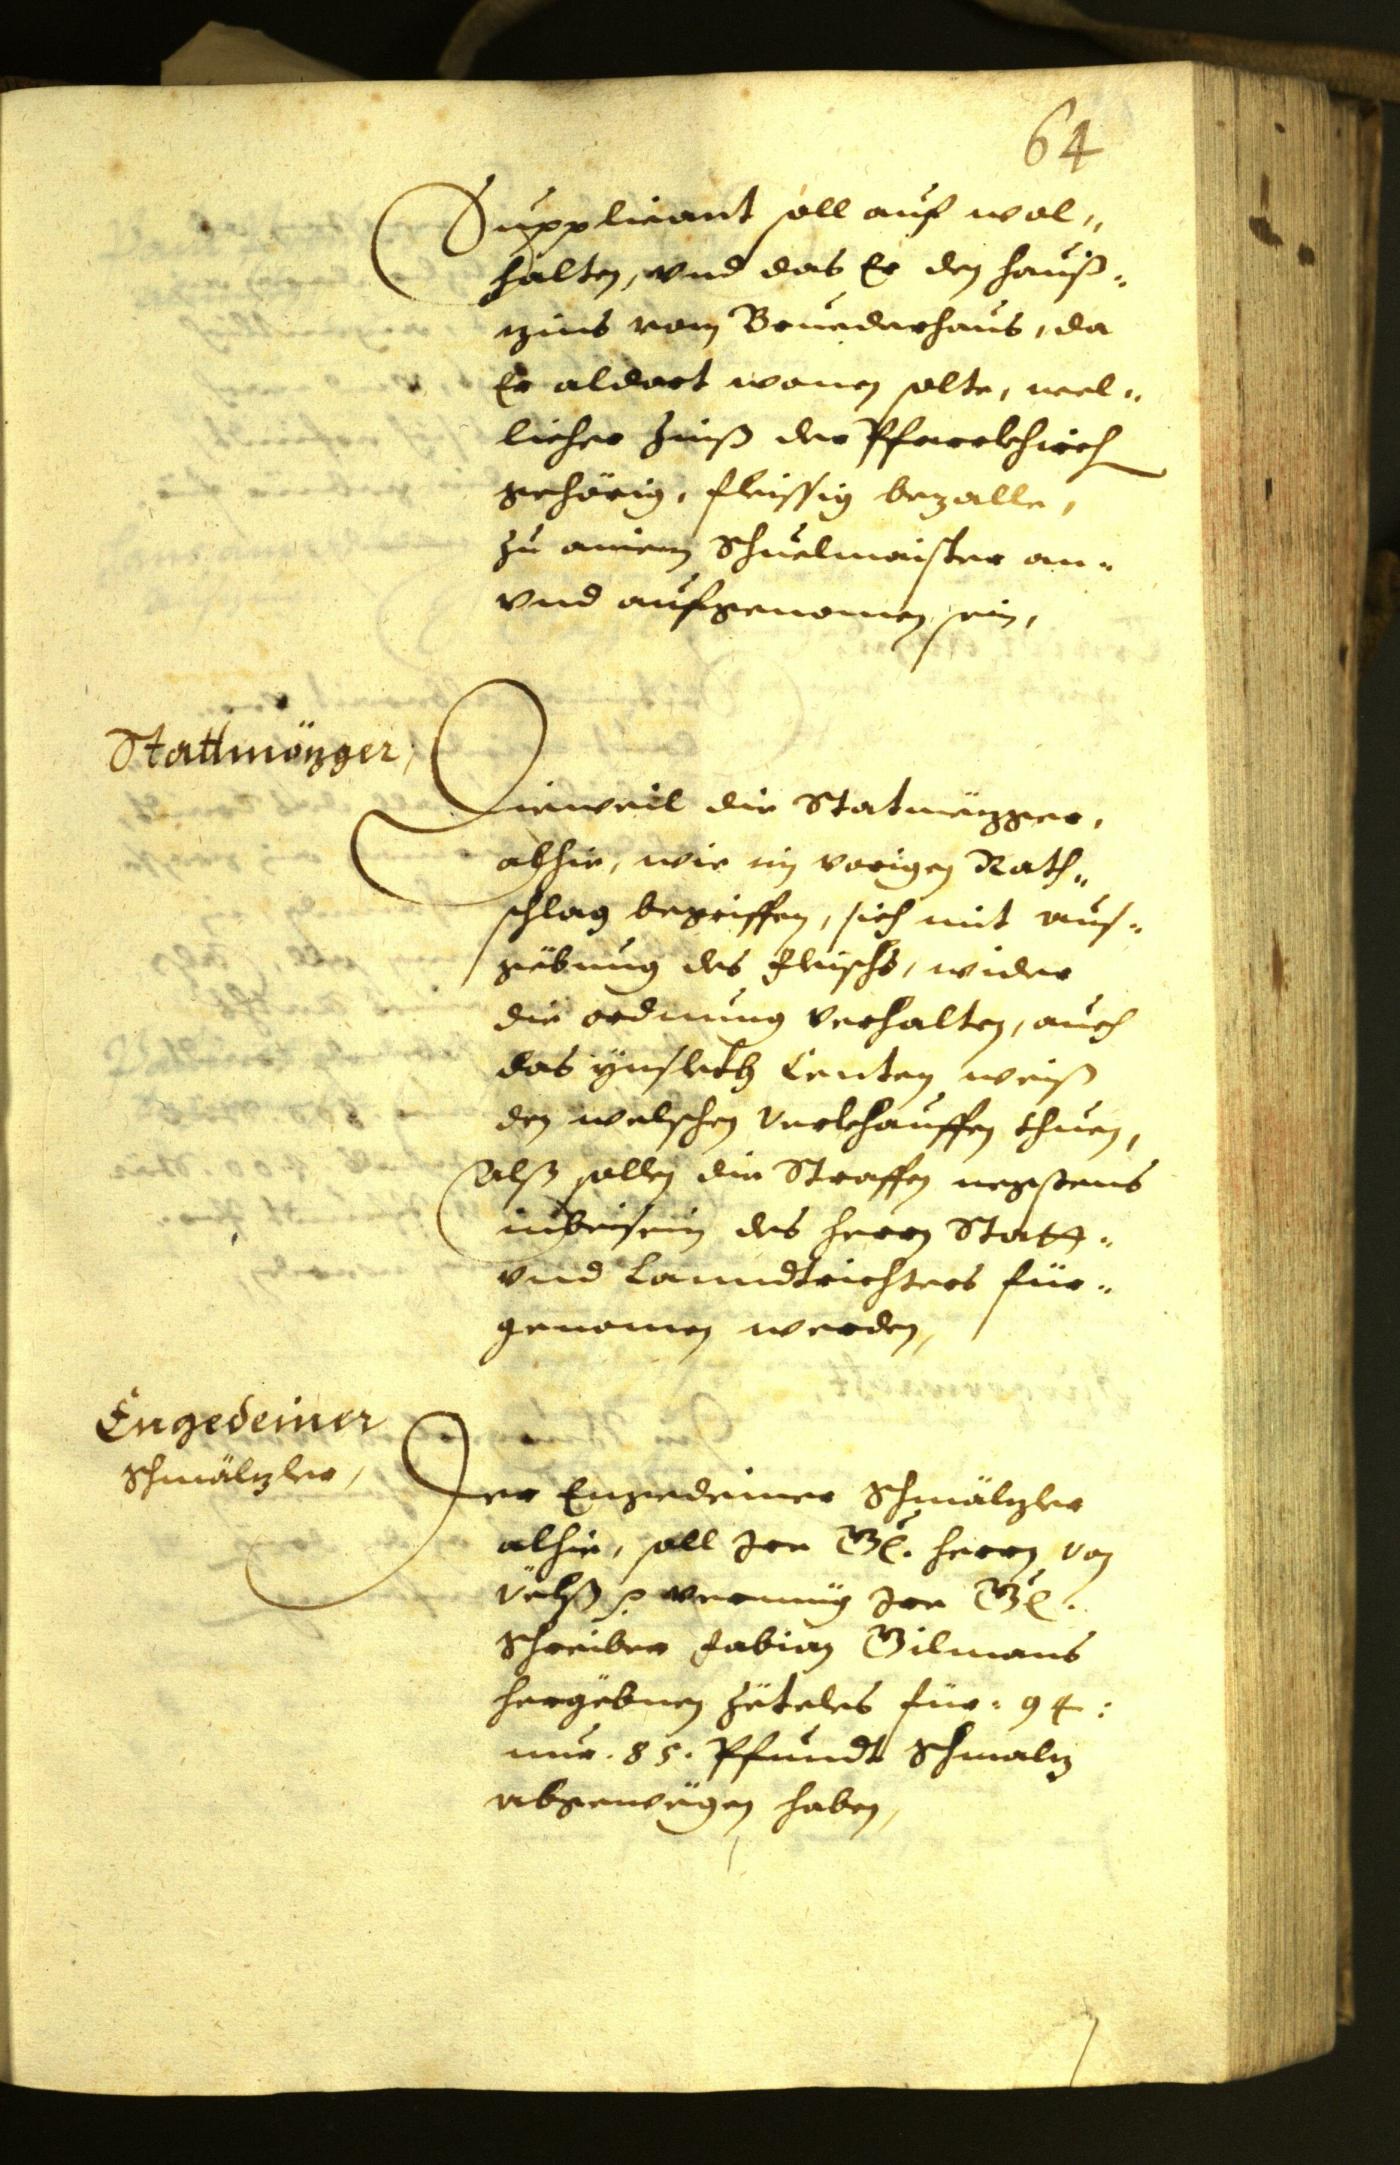 64
Supplicant soll auf wol„
halten, vnd das Er den hauß„
zins vom Bruederhaus, da
Er aldort wonen solte, wel„
licher Zinß der Pfarrkhirch
gehörig, fleissig bezalle,
zu ainem Schuelmaister an„
vnd aufgenomen sein,
Stattmözger,
Dieweil die Statmezger,
alhie, wie im vorigen Rath„
schlag begriffen, sich mit aus„
gebung des fleischs, wider
die ordnung verhalten, auch
das ynslith Centen weiß
den welschen verkhauffen thuen,
Alß sollen die Straffen negstens
inbeisein des herrn Statt„
vnd Lanndtrichters für„
genomen werden,
Engedeiner
Schmälzler,
Der Engedeiner Schmälzler
alhie, soll Irr Gl. herrn von
Velß vermüg Irr Gl.
Schreiber Fabian Gilmans
hergebnen Zeteles für. 94:
nur. 85. Pfundt Schmalz
abgewegen haben,